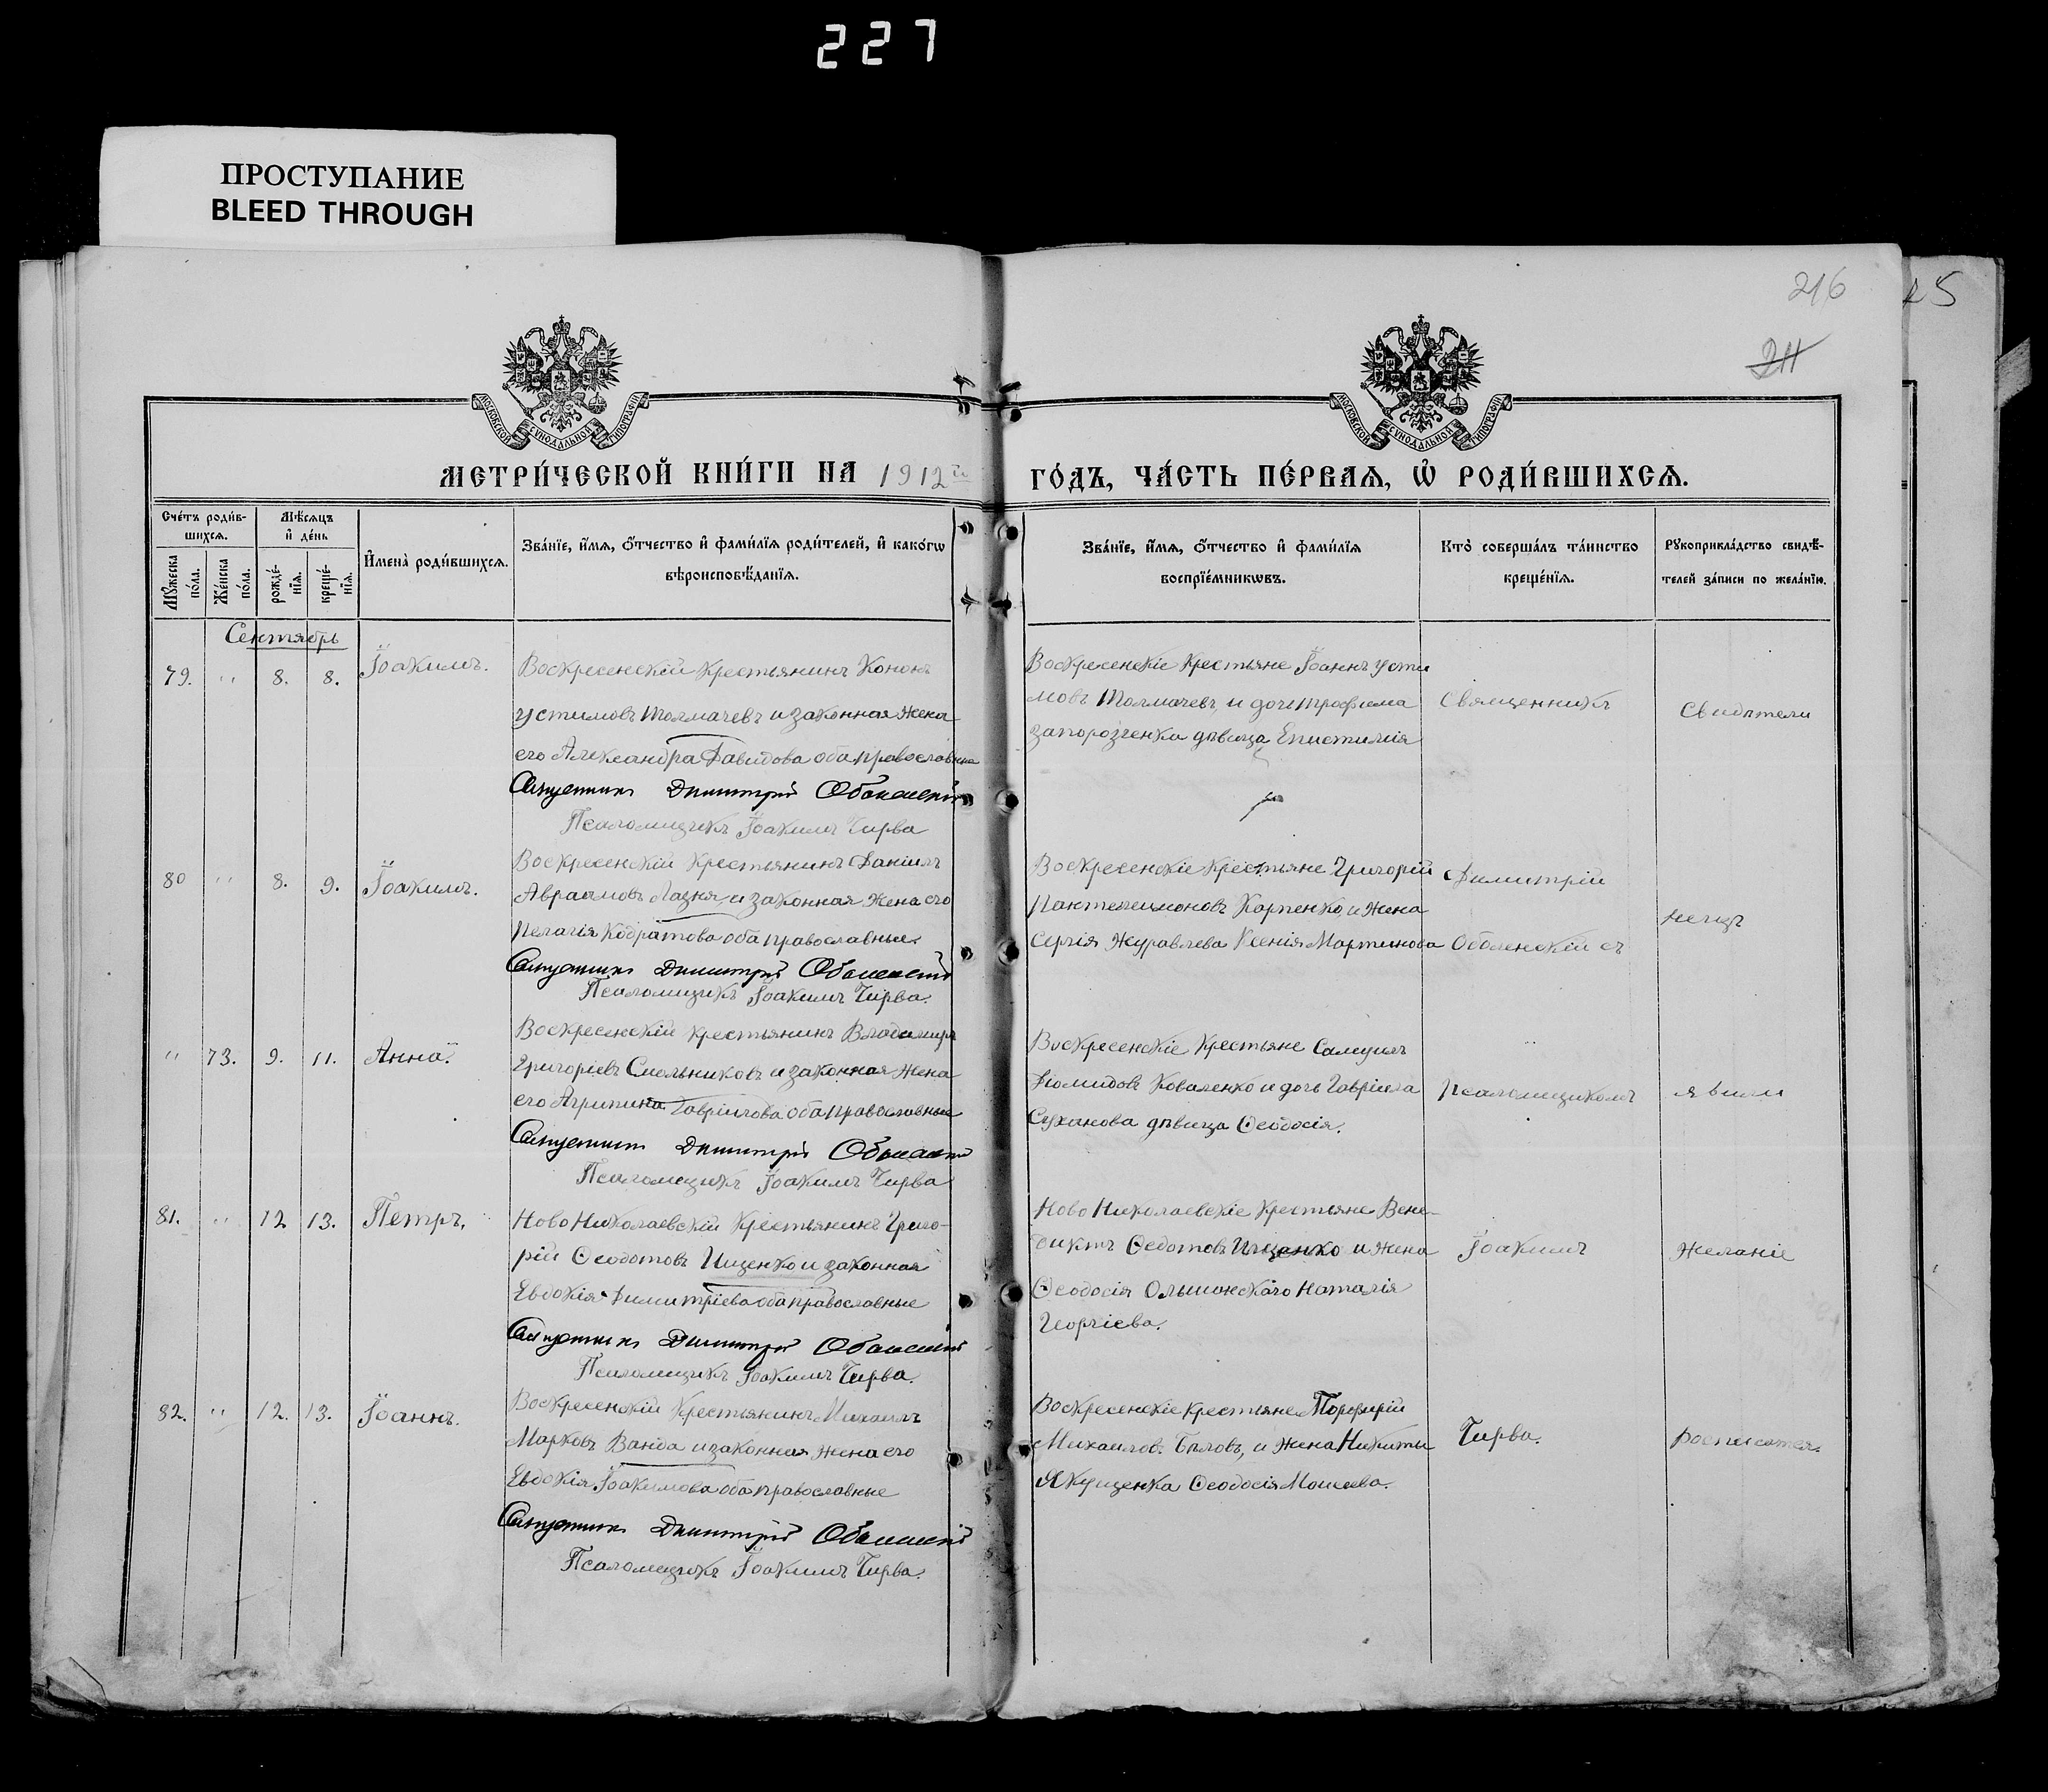 227
ПРОСТУПАНИЕ
BLEED THROUGH
216
25
211
МОСКОВСКОЙ СѴНОДАЛЬНОЙ ТИПОГРАФІИ
МОСКОВСКОЙ СѴНОДАЛЬНОЙ ТИПОГРАФІИ
МЕТРИ́ЧЕСКОЙ КНИ́ГИ НА 1912й
ГО́ДЪ, ЧА́СТЬ ПЕ́РВАѦ, Ѡ҆ РОДИ́ВШИХСѦ.
Сче́тъ роди́в-
шихсѧ.
Мꙋ́жеска по́ла.
Же́нска по́ла.
Мѣ́сѧцъ
и҆ де́нь
рожде́-
нїѧ.
креще́-
нїѧ.
И҆мена̀ роди́вшихсѧ.
Зва́нїе, и҆́мѧ, ѻ҆́тчество и҆ фами́лїѧ роди́телей, и҆ како́гѡ
вѣроисповѣ́данїѧ.
Зва́нїе, и҆́мѧ, ѻ҆́тчество и҆ фами́лїѧ
воспрїе́мникѡвъ.
Кто̀ соверша́лъ та́инство
креще́нїѧ.
Рꙋкоприкла́дство свидѣ́-
телей за́писи по жела́нїю.
Сентябрь
79. " 8. 8. Іоакимъ.
Воскресенскій Крестьянинъ Кононъ
Устимовъ Толмачевъ и законная жена
его Александра Давидова оба православные
Священникъ Димитрій Оболенскій
Псаломщикъ Іоакимъ Чирва
Воскресенскіе Крестьяне Іоаннъ Усти
мовъ Толмачевъ, и дочь Трофима
Запорозченка дѣвица Епистимія
Священникъ
Свидѣтели
80 " 8. 9. Іоакимъ.
Воскресенскій Крестьянинъ Даніилъ
Авраамовъ Лазня, и законная жена его
Пелагія Кодратова оба православные.
Священникъ Димитрій Оболенскій
Псаломщикъ Іоакимъ Чирва.
Воскресенскіе Крестьяне Григорій
Пантелеимоновъ Карпенко, и жена
Сергія Журавлева Ксенія Мартинова
Димитрій
Оболенскій съ
неизъ
" 73. 9. 11. Анна.
Воскресенскій Крестьянинъ Владимиръ
Григоріевъ Смольниковъ и законная жена
его Агрипина Гавріилова оба православные
Священникъ Димитрій Оболенскій
Псаломщикъ Іоакимъ Чирва
Воскресенскіе Крестьяне Самуилъ
Діомидовъ Коваленко и дочь Гавріила
Суханова дѣвица Ѳеодосія.
Псаломщикомъ
явили
81. " 12 13. Петръ.
Ново Николаевскій Крестьянинъ Григо-
рій Ѳеодотовъ Ищенко и законная
Евдокія Димитріева оба православные
Священникъ Димитрій Оболенскій
Псаломщикъ Іоакимъ Чирва.
Ново Николаевскіе Крестьяне Вене-
диктъ Ѳедотовъ Ищенко и жена
Ѳеодосія Ольшанскаго Наталія
Георгіева.
Іоакимъ
желаніе
82. " 12. 13. Іоаннъ.
Воскресенскій Крестьянинъ Михаилъ
Марковъ Ванда и законная жена его
Евдокія Іоакимова оба православные
Священникъ Димитрій Оболенскій
Псаломщикъ Іоакимъ Чирва.
Воскресенскіе Крестьяне Порфирій
Михаилов. Бѣловъ, и жена Никиты
Якущенка Ѳеодосія Моисеева.
Чирва.
росписатся.